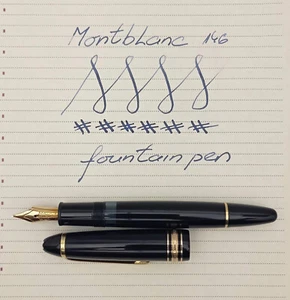 Montblanc 146
######
fountain pen